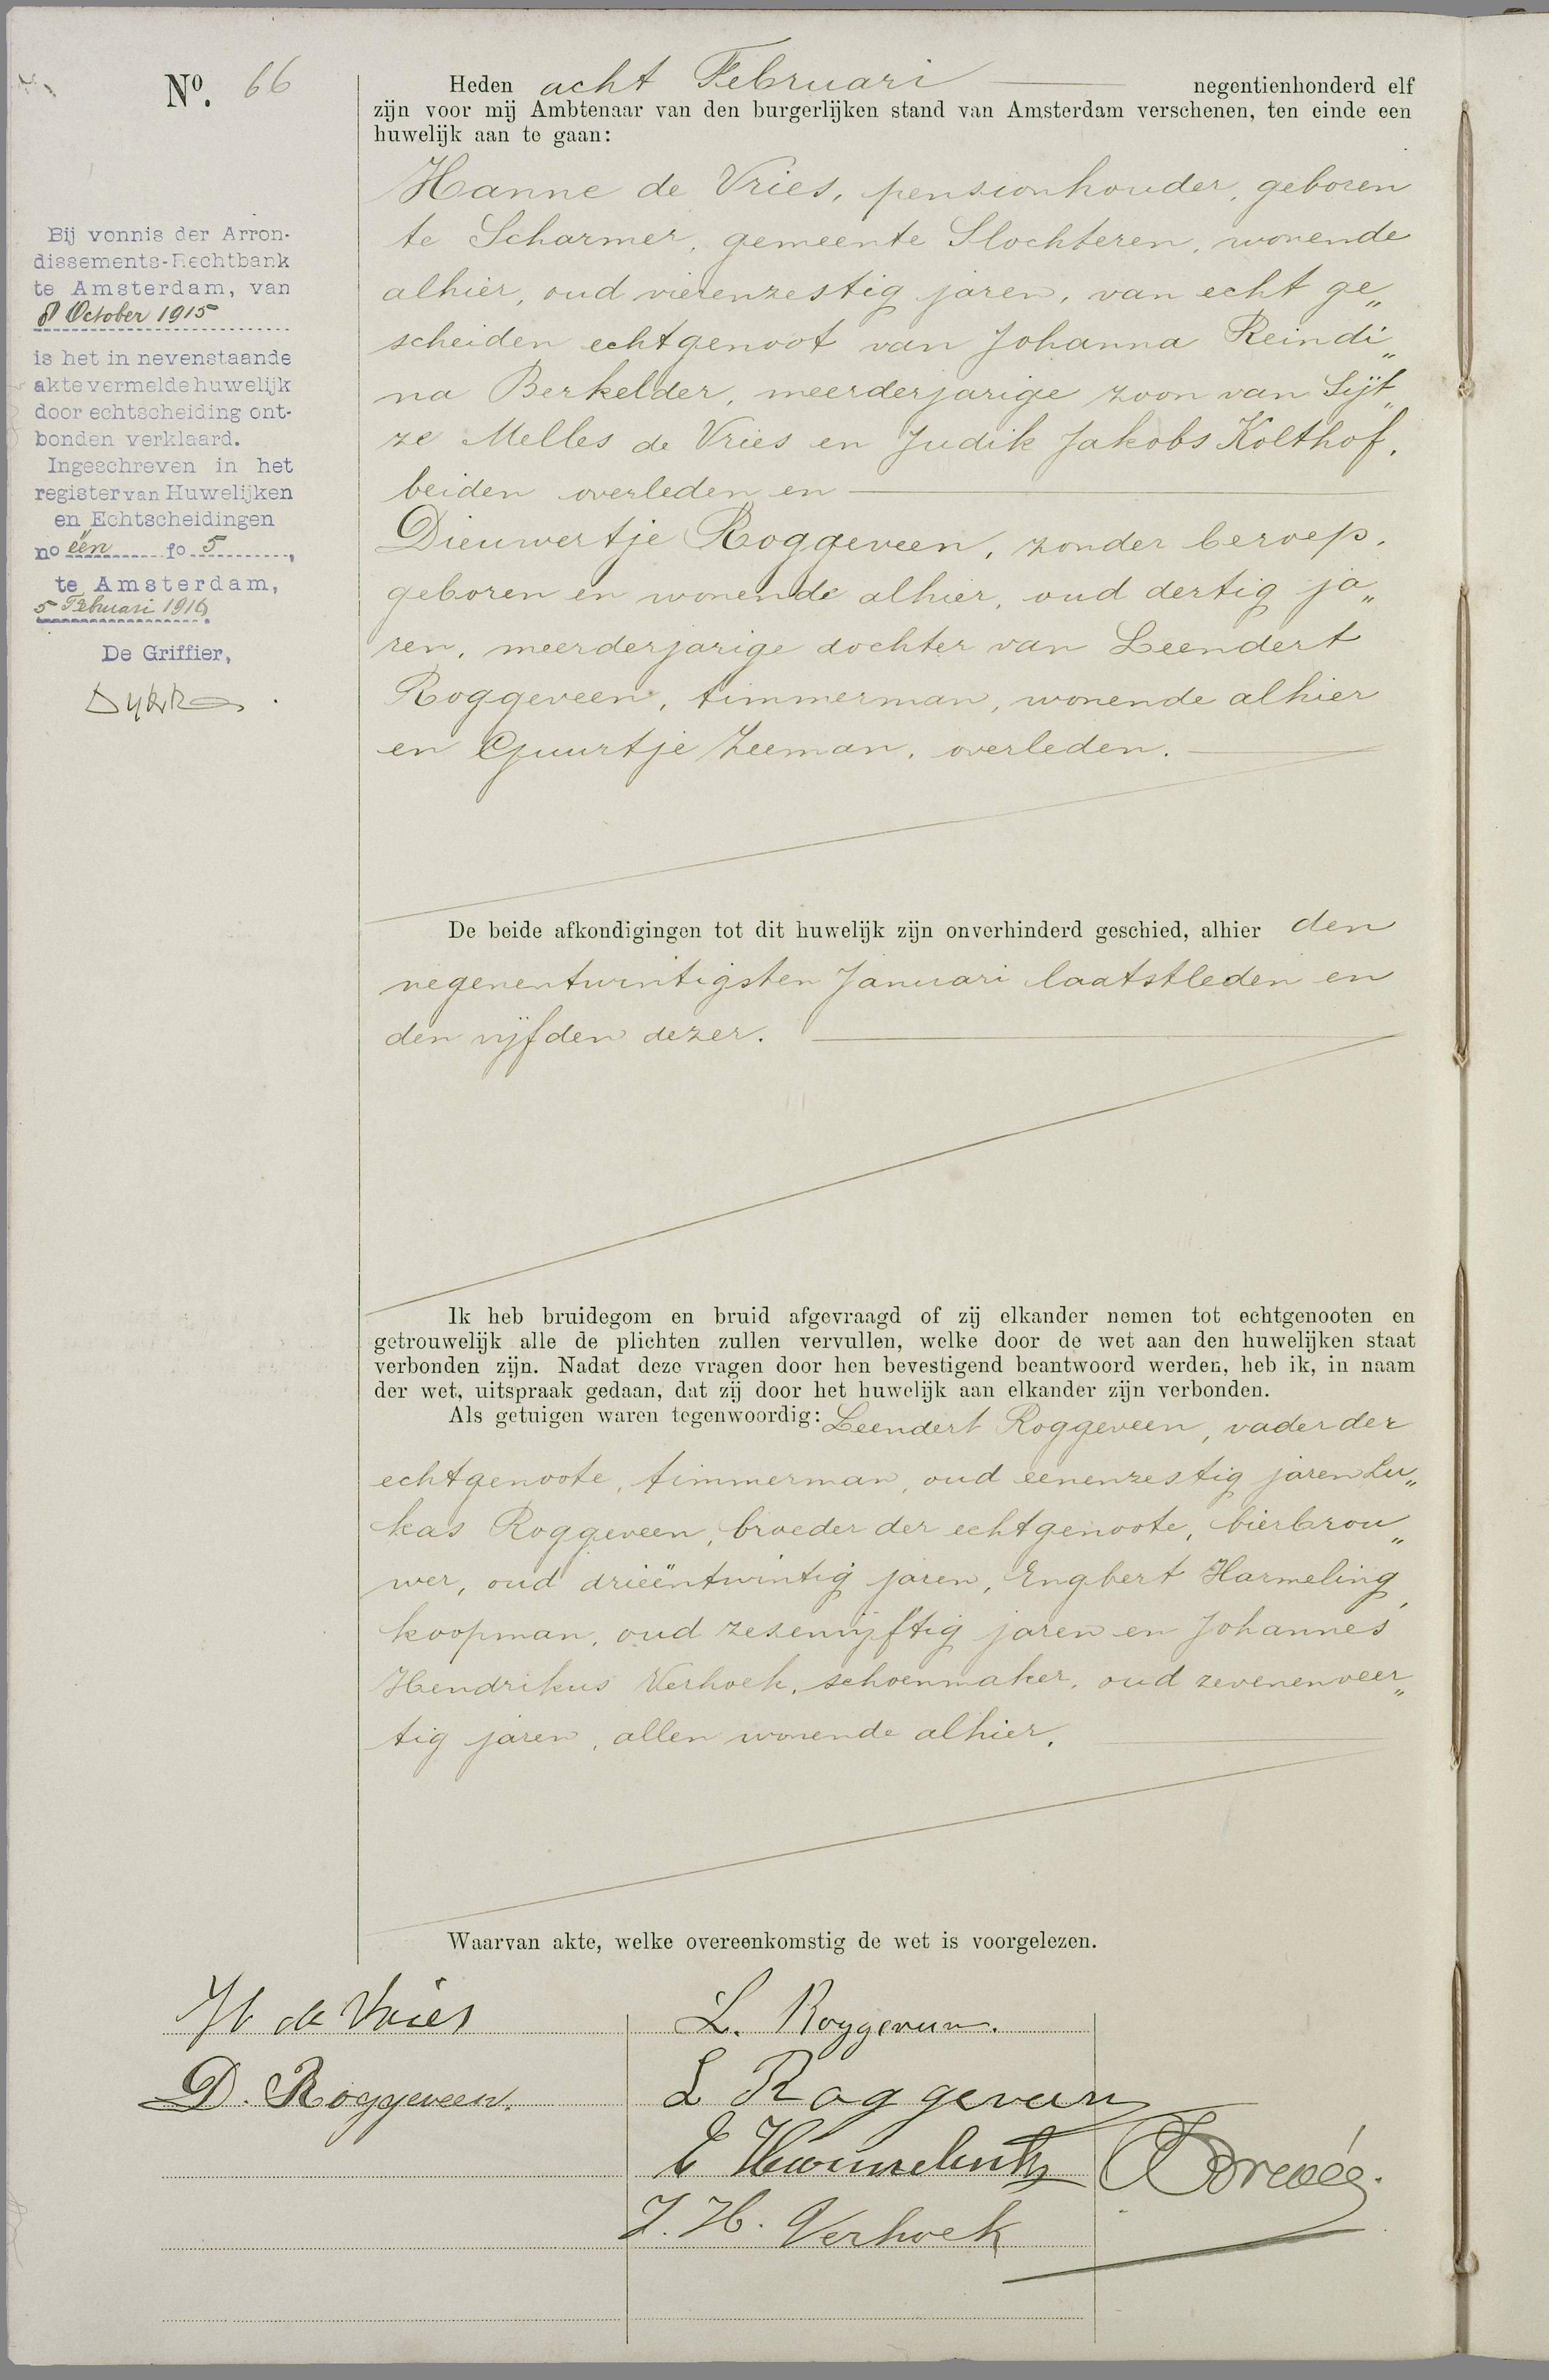 No. 66
Heden acht Februari negentienhonderd elf
zijn voor mij Ambtenaar van den burgerlijken stand van Amsterdam verschenen, ten einde een
huwelijk aan te gaan:
Hanne de Vries, pensionhouder, geboren
te Scharmer, gemeente Slochteren, wonende
alhier, oud vierenzestig jaren, van echt ge„
scheiden echtgenoot van Johanna Reindi„
na Berkelder, meerderjarige zoon van Sijt„
ze Melles de Vries en Judik Jakobs Kolthof,
beiden overleden en
Dieuwertje Roggeveen, zonder beroep,
geboren en wonende alhier, oud dertig ja„
ren, meerderjarige dochter van Leendert
Roggeveen, timmerman, wonende alhier
en Guurtje Zeeman, overleden.
Bij vonnis der Arron-
dissements-Rechtbank
te Amsterdam, van
8 October 1915
is het in nevenstaande
akte vermelde huwelijk
door echtscheiding ont-
bonden verklaard.
Ingeschreven in het
register van Huwelijken
en Echtscheidingen
no één fo 5,
te Amsterdam,
5 Februari 1916.
De Griffier,
De beide afkondigingen tot dit huwelijk zijn onverhinderd geschied, alhier den
negenentwintigsten Januari laatstleden en
den vijfden dezer.
Ik heb bruidegom en bruid afgevraagd of zij elkander nemen tot echtgenooten en
getrouwelijk alle de plichten zullen vervullen, welke door de wet aan den huwelijken staat
verbonden zijn. Nadat deze vragen door hen bevestigend beantwoord werden, heb ik, in naam
der wet, uitspraak gedaan, dat zij door het huwelijk aan elkander zijn verbonden.
Als getuigen waren tegenwoordig: Leendert Roggeveen, vader der
echtgenoote, timmerman, oud eenenzestig jaren Lu„
kas Roggeveen, broeder der echtgenoote, bierbrou„
wer, oud drieëntwintig jaren, Engbert Harmeling,
koopman, oud zesenvijftig jaren en Johannes
Hendrikus Verhoek, schoenmaker, oud zevenenveer„
tig jaren, allen wonende alhier.
Waarvan akte, welke overeenkomstig de wet is voorgelezen.
H de Vries
D. Roggeveen.
L. Roggeveen.
L Roggeveen
J. H. Verhoek